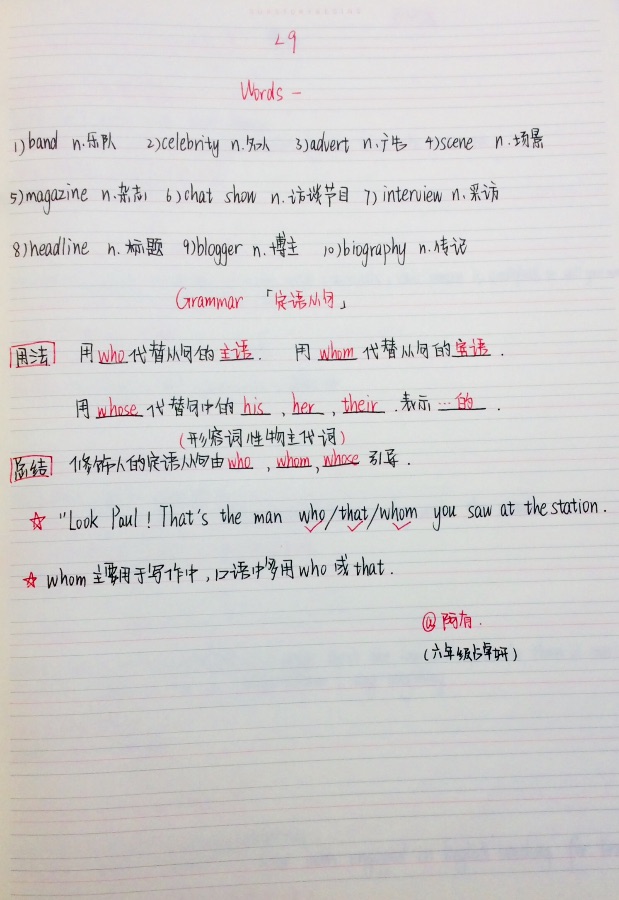 L9
Words -
1) band n.乐队 2) celebrity n.名人 3) advert n.广告 4) scene n.场景
5) magazine n.杂志 6) chat show n.访谈节目 7) interview n.采访
8) headline n.标题 9) blogger n.博主 10) biography n.传记
Grammar 「定语从句」
用法 用who代替从句的主语. 用whom代替从句的宾语.
用whose代替句中的his, her, their.表示…的.
(形容词性物主代词)
总结 修饰人的定语从句由who, whom, whose引导.
☆ "Look Paul! That's the man who/that/whom you saw at the station.
☆ whom主要用于写作中,口语中多用who或that.
@阿有.
(六年级 卓妍)